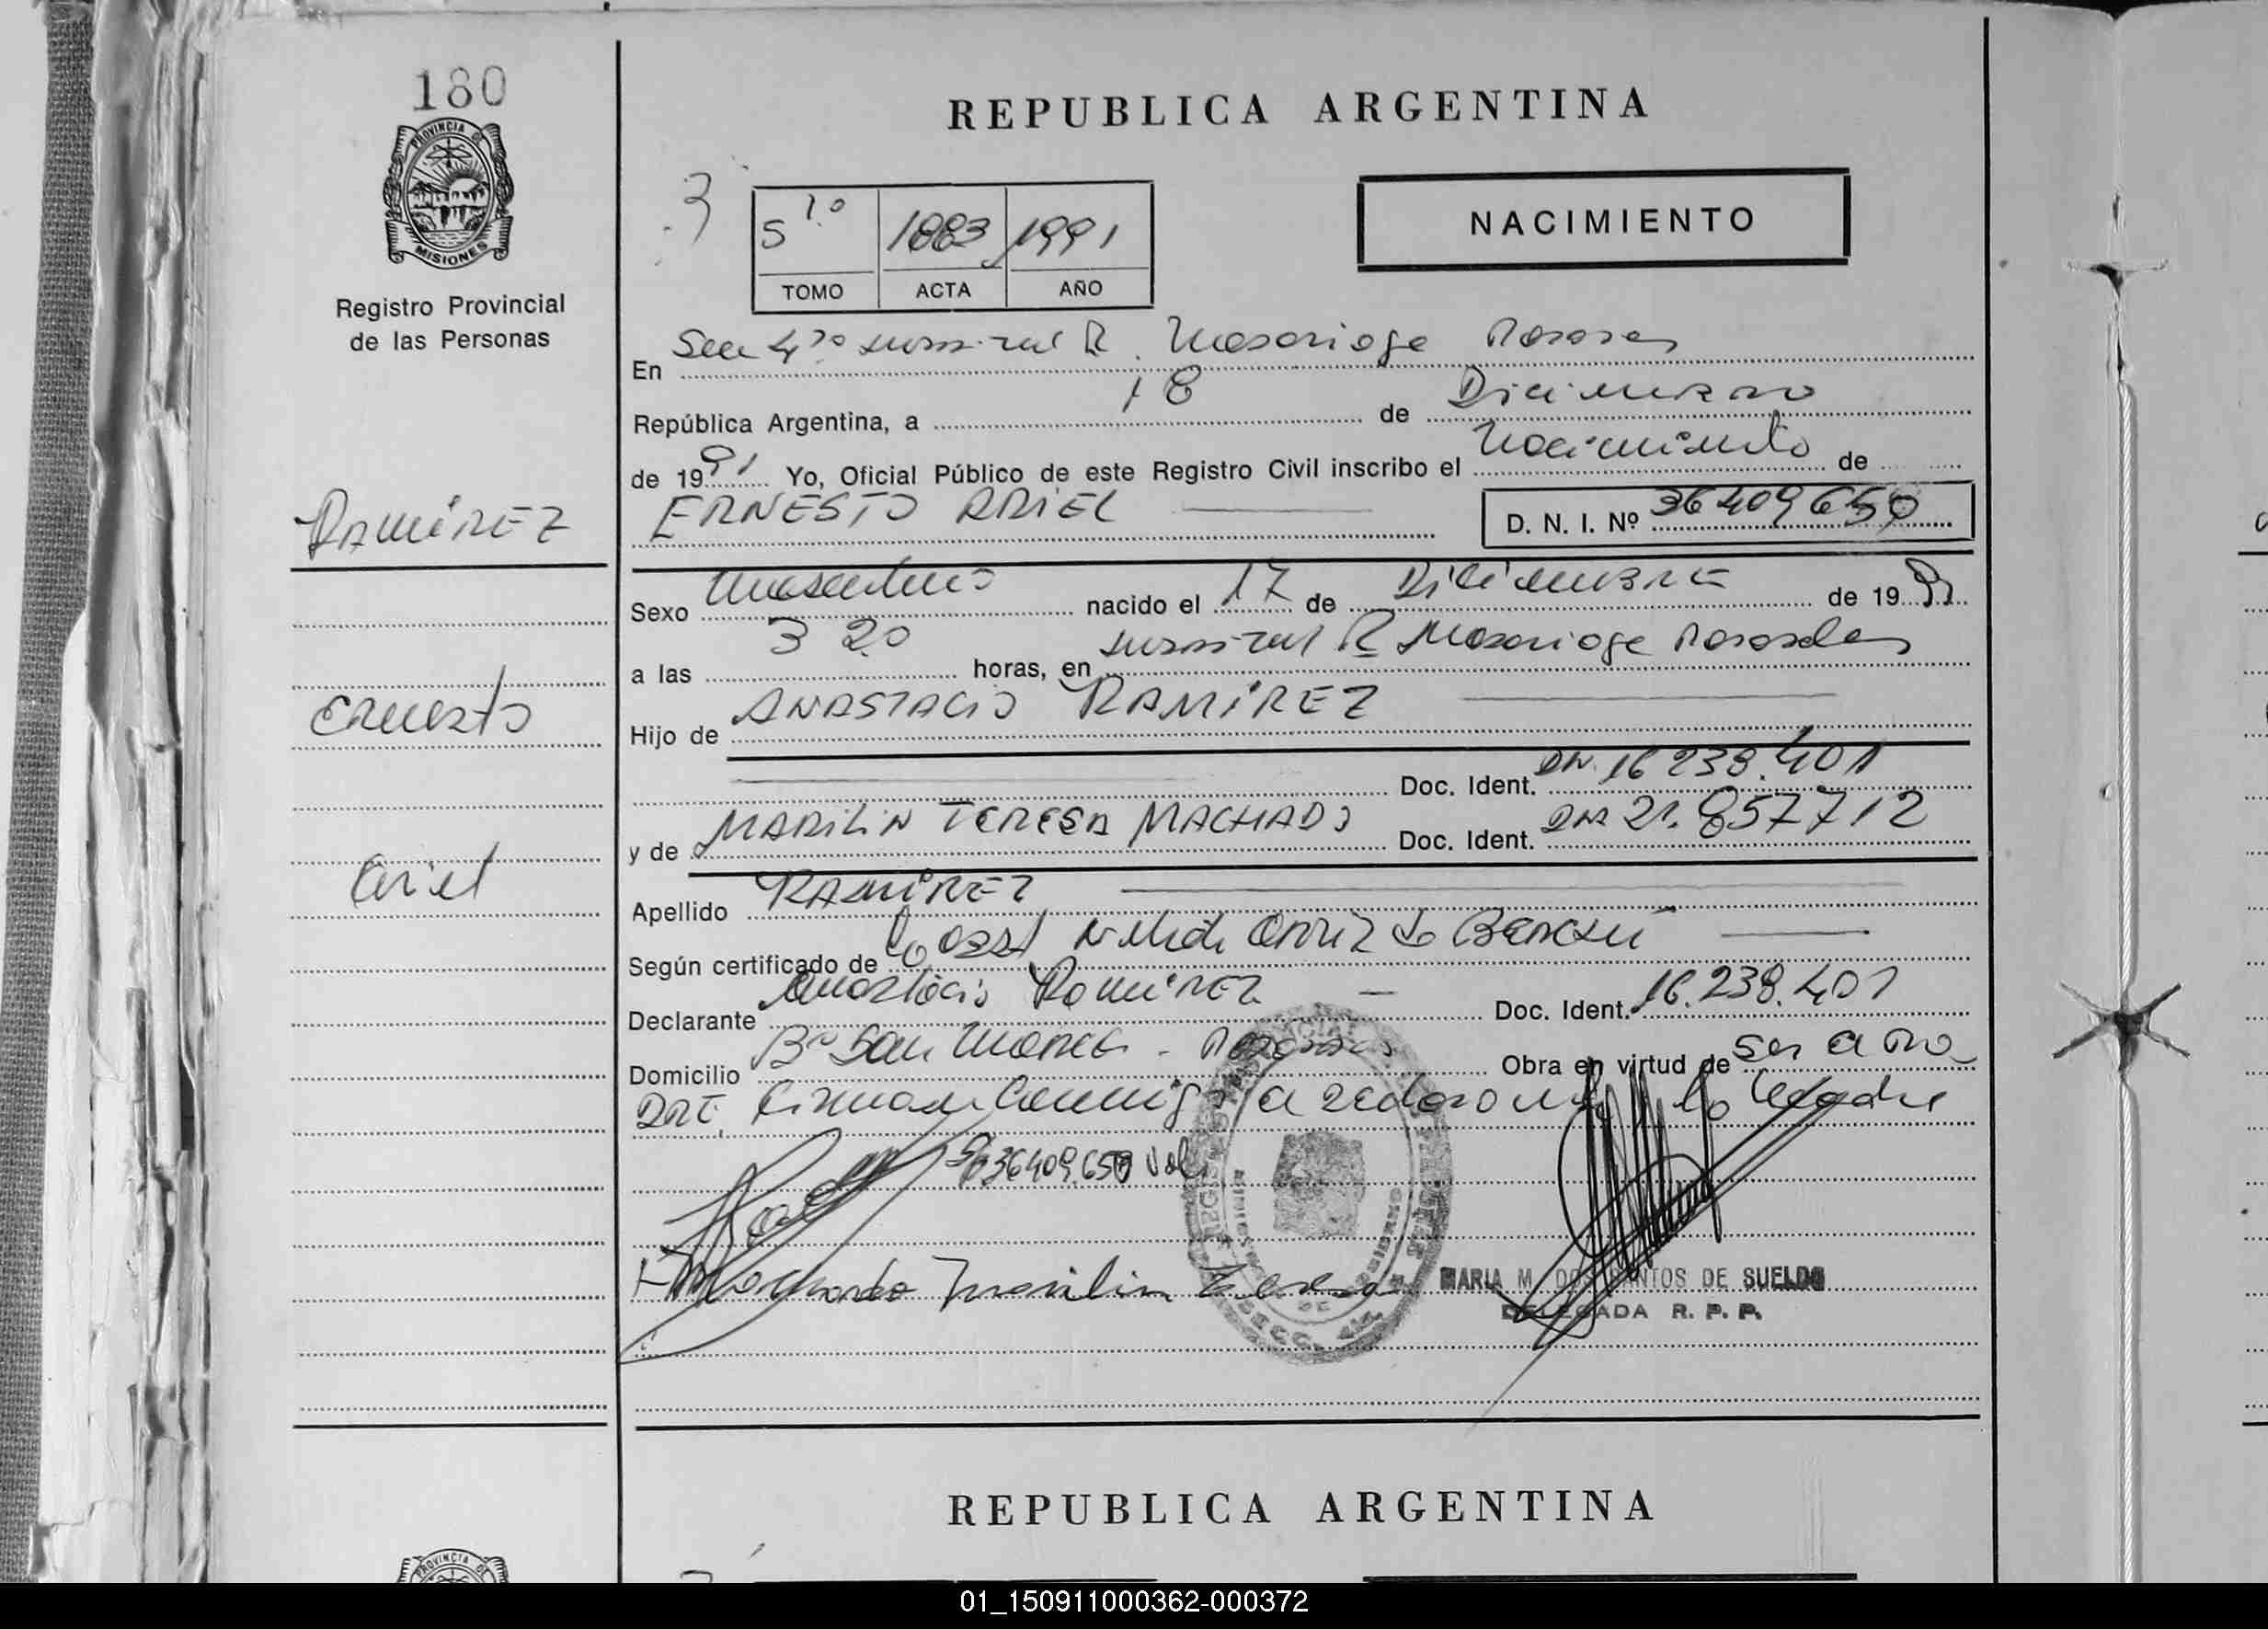 180
PROVINCIA DE
MISIONES
Registro Provincial
de las Personas
REPUBLICA ARGENTINA
3
5 1º 1883 1991
TOMO ACTA AÑO
NACIMIENTO
En Sec 4ta R. Posadas
República Argentina, a 18 de Diciembre
de 1991 Yo, Oficial Público de este Registro Civil inscribo el Nacimiento de
RAMIREZ
ERNESTO ARIEL
D. N. I. Nº 36409659
Sexo Masculino nacido el 17 de Diciembre de 1991
a las 3 20 horas, en R Posadas
Ernesto
Hijo de ANASTACIO RAMIREZ
Doc. Ident. 16 238.401
y de MARILIN TERESA MACHADO Doc. Ident. 21.857712
Ariel
Apellido RAMIREZ
Según certificado de
Declarante Anastacio Ramirez Doc. Ident. 16.238.401
Domicilio Bº San Posadas Obra en virtud de ser el Pa
dre. Firman conmigo el declarante y la Madre
36409.659 Vale
Machado Marilin Teresa
MARIA M. DOS SANTOS DE SUELDO
DELEGADA R. P. P.
REPUBLICA ARGENTINA
PROVINCIA DE
01_150911000362-000372